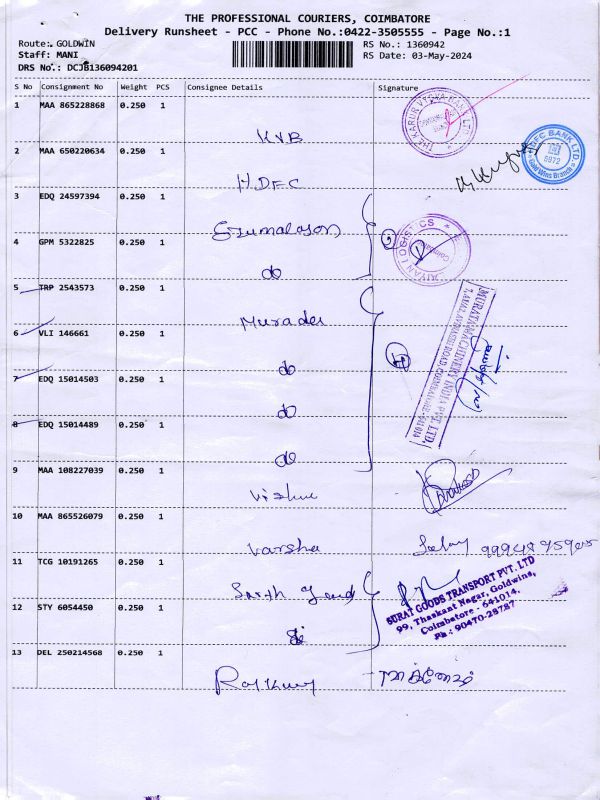 THE PROFESSIONAL COURIERS, COIMBATORE
Delivery Runsheet - PCC - Phone No.:0422-3505555 - Page No.:1
Route: GOLDWIN
RS No.: 1360942
Staff: MANI
RS Date: 03-May-2024
DRS No.: DCJB136094201
S No Consignment No Weight PCS Consignee Details Signature
1 MAA 865228868 0.250 1 KVB
THE KARUR VYSYA BANK LTD
2 MAA 650220634 0.250 1 HDEC
HDFC BANK LTD.
6872
Gold Wins Branch
3 EDQ 24597394 0.250 1
4 GPM 5322825 0.250 1 do
LOGISTICS
5 TRP 2543573 0.250 1
6 VLI 146661 0.250 1 do
7 EDQ 15014503 0.250 1 do
8 EDQ 15014489 0.250 1 do
MURATA MACHINERY INDIA PVT. LTD.
ROAD, COIMBATORE
9 MAA 108227039 0.250 1 Vishnu
10 MAA 865526079 0.250 1 Varsha
11 TCG 10191265 0.250 1
12 STY 6054450 0.250 1
SURAT GOODS TRANSPORT PVT. LTD
99, Thaskant Nagar, Goldwins,
Coimbatore - 641014.
Ph : 90470-28787
13 DEL 250214568 0.250 1